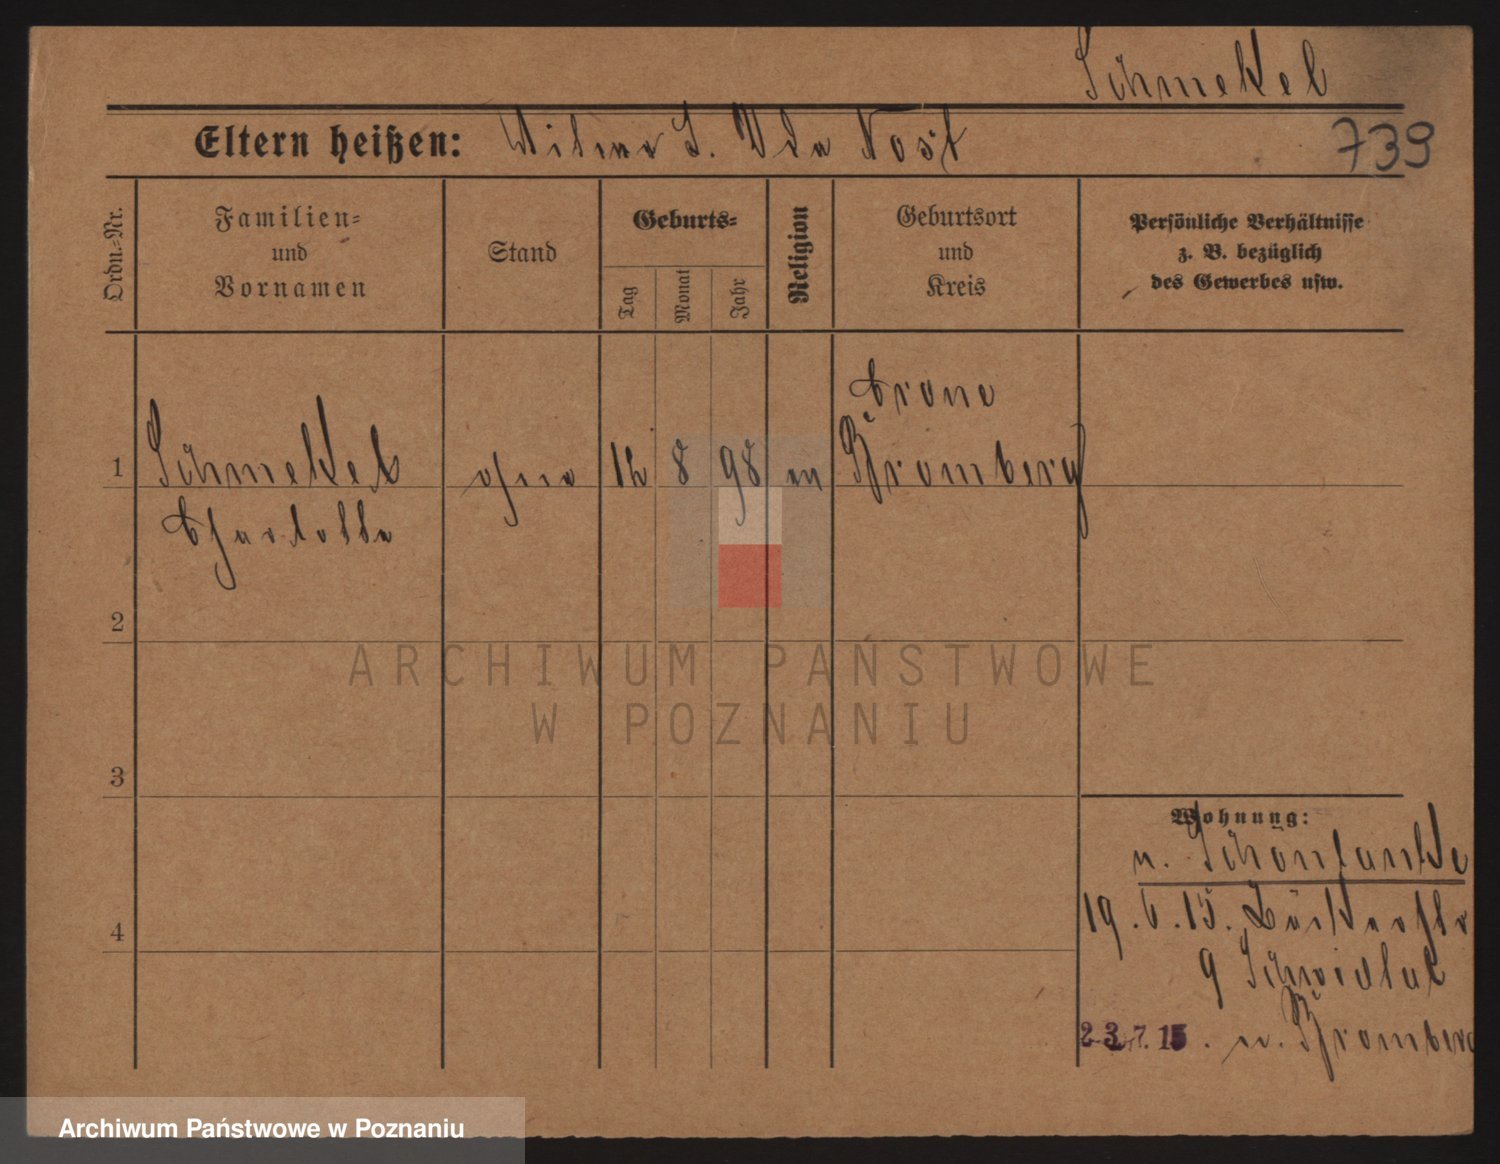 Schmekel
Eltern heißen: Wilmar S. Ida Jost
739
Ordn.-Nr.
Familien-
und
Vornamen
Stand
Geburts-
Tag
Monat
Jahr
Religion
Geburtsort
und
Kreis
Persönliche Verhältnisse
z. B. bezüglich
des Gewerbes usw.
Crone
1 Schmekel ohne 12 8 98 Bromberg
Charlotte
2
ARCHIWUM PAŃSTWOWE
W POZNANIU
3
Wohnung:
n. Schönlanke
19.6.15.
9
4
23.7.15. n. Bromberg
Archiwum Państwowe w Poznaniu